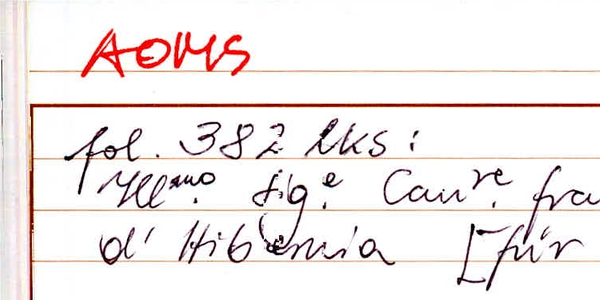 AOMS
fol. 382 lks:
Illmo. Sige. Canre. fra
d' Hibernia [für